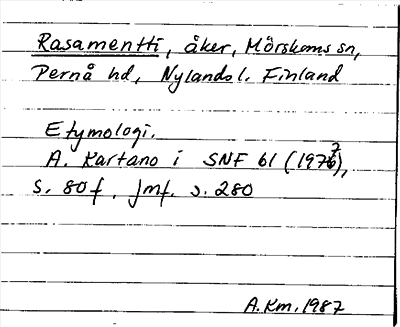 Rasamentti, åker, Mörskoms sn,
Pernå hd, Nylands l. Finland
Etymologi.
A. Kartano i SNF 61 (1977),
s. 80 f. Jmf. s. 280
A.Km. 1987